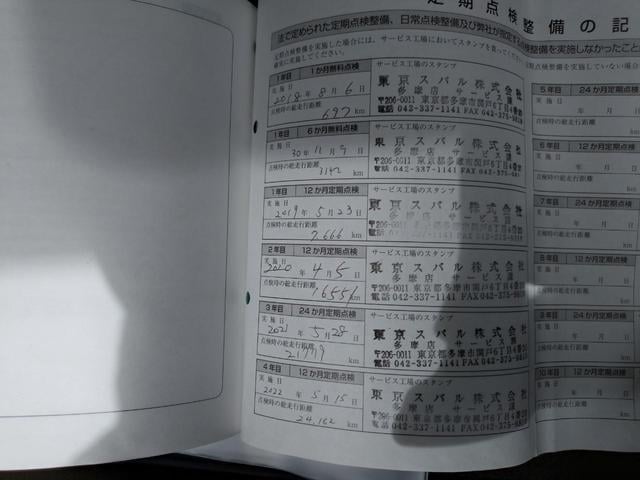 定期点検整備の記
法で定められた定期点検整備、日常点検整備及び弊社が指定する
点検整備を実施しなかったこと
定期点検整備を実施した場合には、サービス工場においてスタンプを
確実に実施してください。
実施していない場合
1年目 1か月無料点検
実施日
2018年8月6日
点検時の総走行距離
697 km
サービス工場のスタンプ
東京スバル株式会社
多摩店 サービス課
〒206-0011 東京都多摩市関戸6丁目4番
電話 042-337-1141 FAX 042-375-
1年目 6か月無料点検
実施日
30年11月9日
点検時の総走行距離
3142 km
サービス工場のスタンプ
東京スバル株式会社
多摩店 サービス課
〒206-0011 東京都多摩市関戸6丁目4番
電話 042-337-1141 FAX 042-375-
1年目 12か月定期点検
実施日
2019年5月23日
点検時の総走行距離
7,666 km
サービス工場のスタンプ
東京スバル株式会社
多摩店 サービス課
〒206-0011 東京都多摩市関戸6丁目4番
電話 042-337-1141 FAX 042-375-
2年目 12か月定期点検
実施日
2020年4月5日
点検時の総走行距離
16551 km
サービス工場のスタンプ
東京スバル株式会社
多摩店 サービス課
〒206-0011 東京都多摩市関戸6丁目4番
電話 042-337-1141 FAX 042-375-
3年目 24か月定期点検
実施日
2021年5月28日
点検時の総走行距離
21779 km
サービス工場のスタンプ
東京スバル株式会社
多摩店 サービス課
〒206-0011 東京都多摩市関戸6丁目4番
電話 042-337-1141 FAX 042-375-
4年目 12か月定期点検
実施日
2022年5月15日
点検時の総走行距離
24,162 km
サービス工場のスタンプ
東京スバル株式会社
多摩店 サービス課
〒206-0011 東京都多摩市関戸6丁目4番
電話 042-337-1141 FAX 042-375-
5年目 24か月定期点検
実施日
年 月
点検時の総走行距離
6年目 12か月定期点検
実施日
年 月
点検時の総走行距離
7年目 24か月定期点検
実施日
年 月
点検時の総走行距離
8年目 12か月定期点検
実施日
年 月
点検時の総走行距離
9年目 24か月定期点検
実施日
年 月
点検時の総走行距離
10年目 12か月定期点検
実施日
年 月
点検時の総走行距離